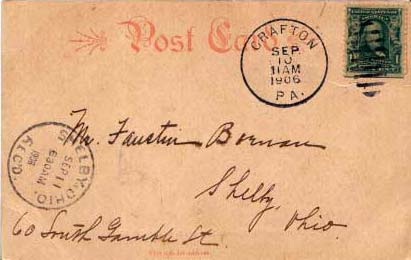 Post Card
CRAFTON
SEP.
10
11AM
1906
PA.
Mr. Faustin Bornan
Shelby,
Ohio.
60 South Gamble St.
SHELBY, OHIO.
SEP 11
630AM
1906
REC'D.